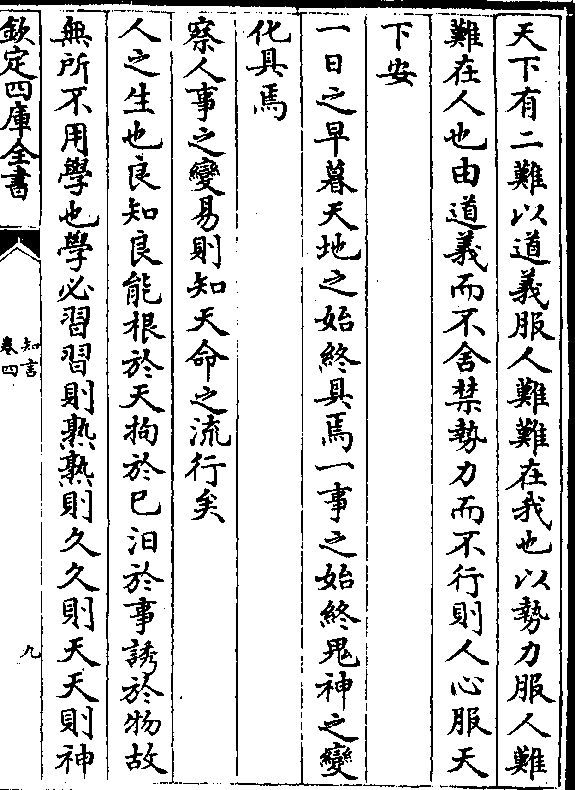 天下有二難以道義服人難難在我也以勢力服人難
難在人也由道義而不舍禁勢力而不行則人心服天
下安
一日之早暮天地之始終具焉一事之始終鬼神之變
化具焉
察人事之變易則知天命之流行矣
人之生也良知良能根於天拘於已汨於事誘於物故
無所不用學也學必習習則熟熟則久久則天天則神
欽定四庫全書
知言
卷四
九